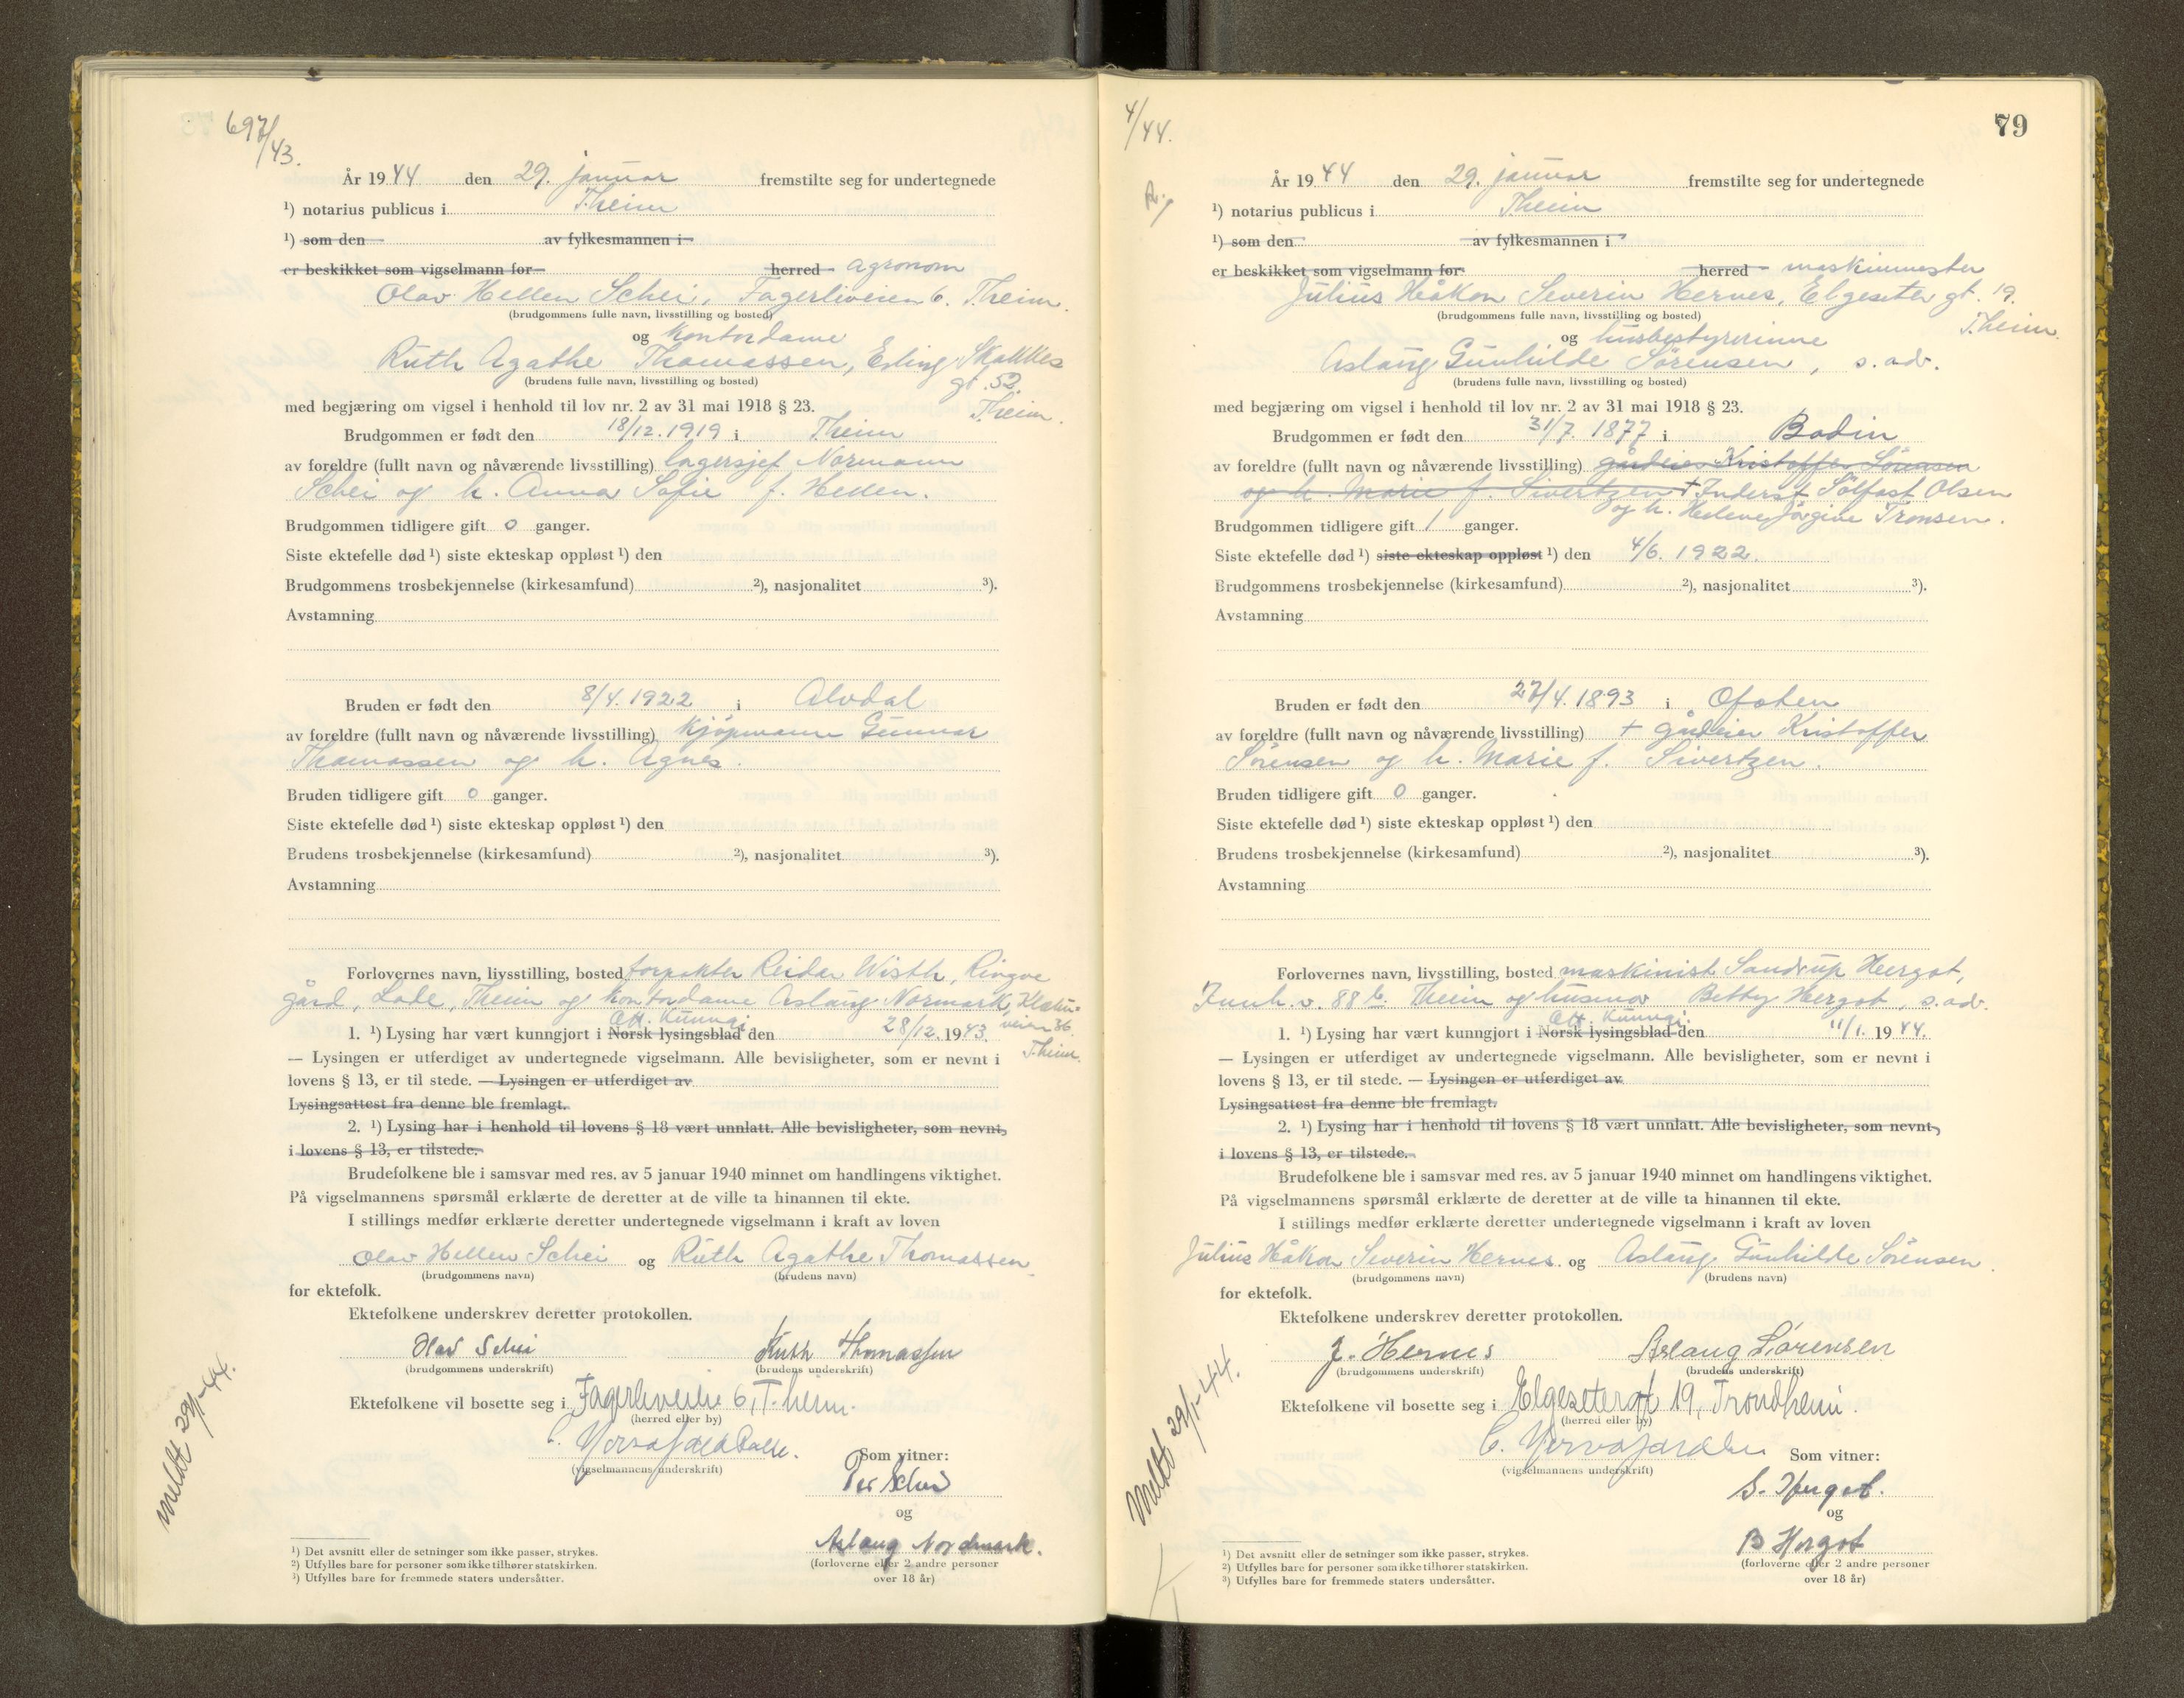 697/43.
År 1944 den 29. januar fremstilte seg for undertegnede
¹) notarius publicus i T.heim
¹) som den av fylkesmannen i
er beskikket som vigselmann for herred agronom
Olav Hellen Schei, Fagerliveien 6. T.heim.
(brudgommens fulle navn, livsstilling og bosted)
og kontordame
Ruth Agathe Thomassen, Erling Skakkes
gt. 52.
(brudens fulle navn, livsstilling og bosted)
T.heim.
med begjæring om vigsel i henhold til lov nr. 2 av 31 mai 1918 § 23.
Brudgommen er født den 18/12. 1919 i T.heim
av foreldre (fullt navn og nåværende livsstilling) lagersjef Normann
Schei og h. Anna Sofie f. Hellen.
Brudgommen tidligere gift 0 ganger.
Siste ektefelle død ¹) siste ekteskap oppløst ¹) den
Brudgommens trosbekjennelse (kirkesamfund) ²), nasjonalitet ³).
Avstamning
Bruden er født den 8/4. 1922 i Alvdal
av foreldre (fullt navn og nåværende livsstilling) kjøpmann Gunnar
Thomassen og h. Agnes.
Bruden tidligere gift 0 ganger.
Siste ektefelle død ¹) siste ekteskap oppløst ¹) den
Brudens trosbekjennelse (kirkesamfund) ²), nasjonalitet ³).
Avstamning
Forlovernes navn, livsstilling, bosted forpakter Reidar Wisth, Ringve
gård, Lade, T.heim og kontordame Aslaug Normark,
veien 36.
T.heim.
Off. Kunngj.
1. ¹) Lysing har vært kunngjort i Norsk lysingsblad den 28/12. 1943.
— Lysingen er utferdiget av undertegnede vigselmann. Alle bevisligheter, som er nevnt i
lovens § 13, er til stede. — Lysingen er utferdiget av
Lysingsattest fra denne ble fremlagt.
2. ¹) Lysing har i henhold til lovens § 18 vært unnlatt. Alle bevisligheter, som nevnt,
i lovens § 13, er tilstede.
Brudefolkene ble i samsvar med res. av 5 januar 1940 minnet om handlingens viktighet.
På vigselmannens spørsmål erklærte de deretter at de ville ta hinannen til ekte.
I stillings medfør erklærte deretter undertegnede vigselmann i kraft av loven
Olav Hellen Schei og Ruth Agathe Thomassen
(brudgommens navn) (brudens navn)
for ektefolk.
Ektefolkene underskrev deretter protokollen.
Olav Schei Ruth Thomassen
(brudgommens underskrift) (brudens underskrift)
Ektefolkene vil bosette seg i Fagerliveien 6, T.heim.
(herred eller by)
(vigselmannens underskrift)
Som vitner:
Per Schei
og
Aslaug Nordmark.
(forloverne eller 2 andre personer
over 18 år)
meldt 29/1-44.
¹) Det avsnitt eller de setninger som ikke passer, strykes.
²) Utfylles bare for personer som ikke tilhører statskirken.
³) Utfylles bare for fremmede staters undersåtter.
4/44.
79
År 1944 den 29. januar fremstilte seg for undertegnede
¹) notarius publicus i T.heim
¹) som den av fylkesmannen i
er beskikket som vigselmann for herred maskinmester
Julius Håkon Severin Hernes, Elgeseter gt. 19.
T.heim.
(brudgommens fulle navn, livsstilling og bosted)
og husbestyrerinne
Aslaug Gunhilde Sørensen, s. adr.
(brudens fulle navn, livsstilling og bosted)
med begjæring om vigsel i henhold til lov nr. 2 av 31 mai 1918 § 23.
Brudgommen er født den 31/7. 1877 i Bodin
av foreldre (fullt navn og nåværende livsstilling) gårdeier Kristoffer Sørensen
og h. Marie f. Sivertzen + Inderst Sølfast Olsen
og h. Helene Jørgine Tronsen.
Brudgommen tidligere gift 1 ganger.
Siste ektefelle død ¹) siste ekteskap oppløst ¹) den 4/6. 1922.
Brudgommens trosbekjennelse (kirkesamfund) ²), nasjonalitet ³).
Avstamning
Bruden er født den 27/4. 1893 i Ofoten
av foreldre (fullt navn og nåværende livsstilling) + gårdeier Kristoffer
Sørensen og h. Marie f. Sivertzen.
Bruden tidligere gift 0 ganger.
Siste ektefelle død ¹) siste ekteskap oppløst ¹) den
Brudens trosbekjennelse (kirkesamfund) ²), nasjonalitet ³).
Avstamning
Forlovernes navn, livsstilling, bosted maskinist Sandrup Hergot,
Innh. v. 88 b. T.heim og husmor Betty Hergot, s. adr.
Off. Kunngj.
1. ¹) Lysing har vært kunngjort i Norsk lysingsblad den 11/1. 1944.
— Lysingen er utferdiget av undertegnede vigselmann. Alle bevisligheter, som er nevnt i
lovens § 13, er til stede. — Lysingen er utferdiget av
Lysingsattest fra denne ble fremlagt.
2. ¹) Lysing har i henhold til lovens § 18 vært unnlatt. Alle bevisligheter, som nevnt,
i lovens § 13, er tilstede.
Brudefolkene ble i samsvar med res. av 5 januar 1940 minnet om handlingens viktighet.
På vigselmannens spørsmål erklærte de deretter at de ville ta hinannen til ekte.
I stillings medfør erklærte deretter undertegnede vigselmann i kraft av loven
Julius Håkon Severin Hernes og Aslaug Gunhilde Sørensen.
(brudgommens navn) (brudens navn)
for ektefolk.
Ektefolkene underskrev deretter protokollen.
J. Hernes Aslaug Sørensen
(brudgommens underskrift) (brudens underskrift)
Ektefolkene vil bosette seg i Elgesetergt 19, Trondheim.
(herred eller by)
(vigselmannens underskrift)
Som vitner:
S. Hergot.
og
B Hergot
(forloverne eller 2 andre personer
over 18 år)
Meldt 29/1-44.
¹) Det avsnitt eller de setninger som ikke passer, strykes.
²) Utfylles bare for personer som ikke tilhører statskirken.
³) Utfylles bare for fremmede staters undersåtter.